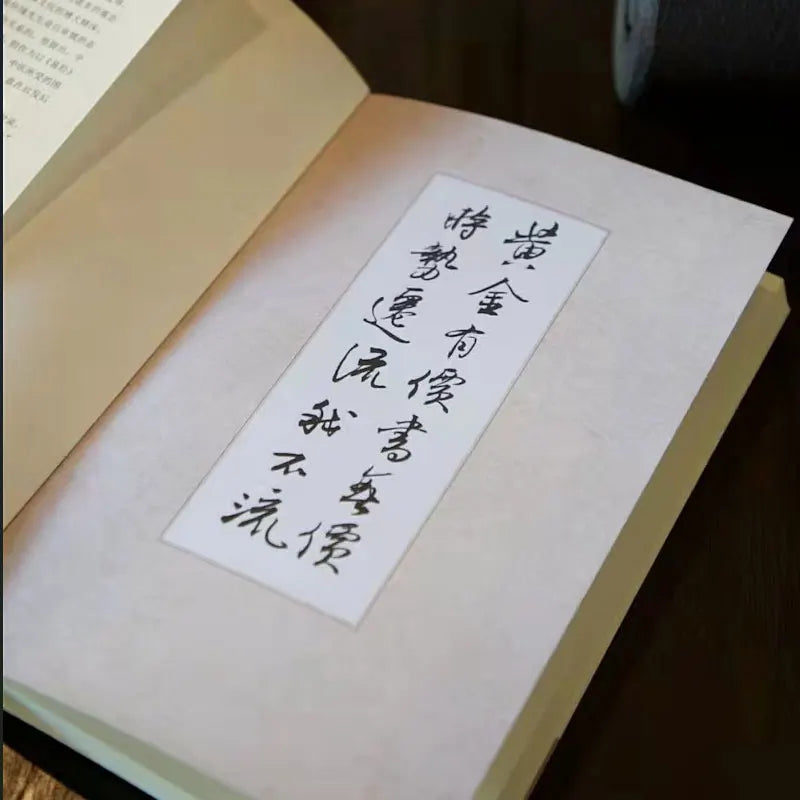 黄金有價書無價
時勢遷流我不流